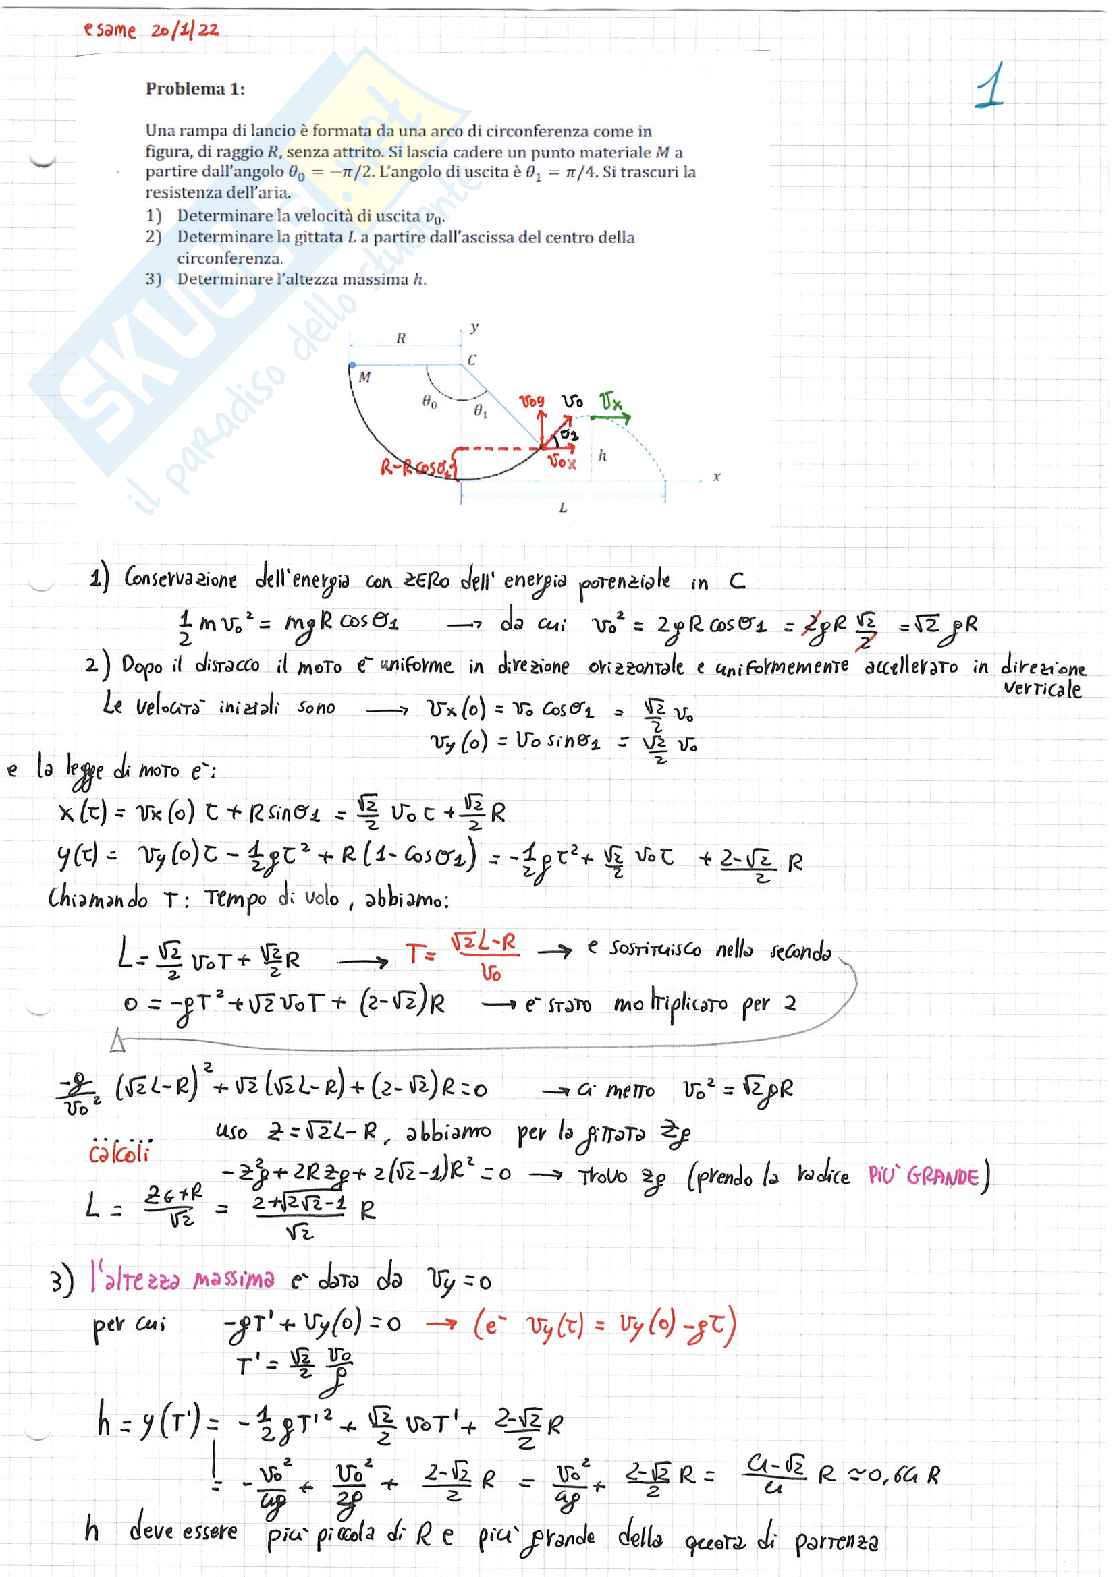 esame 20/1/22
1
Problema 1:
Una rampa di lancio è formata da una arco di circonferenza come in
figura, di raggio R, senza attrito. Si lascia cadere un punto materiale M a
partire dall'angolo θ₀ = −π/2. L'angolo di uscita è θ₁ = π/4. Si trascuri la
resistenza dell'aria.
1) Determinare la velocità di uscita v₀.
2) Determinare la gittata L a partire dall'ascissa del centro della
circonferenza.
3) Determinare l'altezza massima h.
SKUOLA.net
il paradiso dello studente
y
R
C
M
θ₀
θ₁
v₀y
v₀
vₓ
θ₁
v₀x
R-Rcosθ₁
h
x
L
1) Conservazione dell'energia con ZERO dell'energia potenziale in C
1/2 m v₀² = mgR cosθ₁ → da cui v₀² = 2gR cosθ₁ = 2gR √2/2 = √2 gR
2) Dopo il distacco il moto è uniforme in direzione orizzontale e uniformemente accellerato in direzione
verticale
Le velocità iniziali sono → vx(0) = v₀ cosθ₁ = √2/2 v₀
vy(0) = v₀ sinθ₁ = √2/2 v₀
e la legge di moto è:
x(t) = vx(0) t + R sinθ₁ = √2/2 v₀t + √2/2 R
y(t) = vy(0)t − 1/2 gt² + R(1−cosθ₁) = −1/2 gt² + √2/2 v₀t + 2−√2/2 R
Chiamando T: Tempo di volo, abbiamo:
L = √2/2 v₀T + √2/2 R → T = √2L−R/v₀ → e sostituisco nella seconda
0 = −gT² + √2 v₀T + (2−√2)R → è stato moltiplicato per 2
−g/v₀² (√2L−R)² + √2(√2L−R) + (2−√2)R = 0 → ci metto v₀² = √2gR
uso Z = √2L−R, abbiamo per la gittata Zg
calcoli
−Zg² + 2RZg + 2(√2−1)R² = 0 → Trovo Zg (prendo la radice PIU' GRANDE)
L = ZG+R/√2 = 2+√2√2−1/√2 R
3) l'altezza massima è data da vy = 0
per cui −gT' + vy(0) = 0 → (è vy(t) = vy(0) − gt)
T' = √2/2 v₀/g
h = y(T') = −1/2 gT'² + √2/2 v₀T' + 2−√2/2 R
= −v₀²/4g + v₀²/2g + 2−√2/2 R = v₀²/4g + 2−√2/2 R = 4−√2/4 R ≃ 0,64 R
h deve essere più piccola di R e più grande della quota di partenza